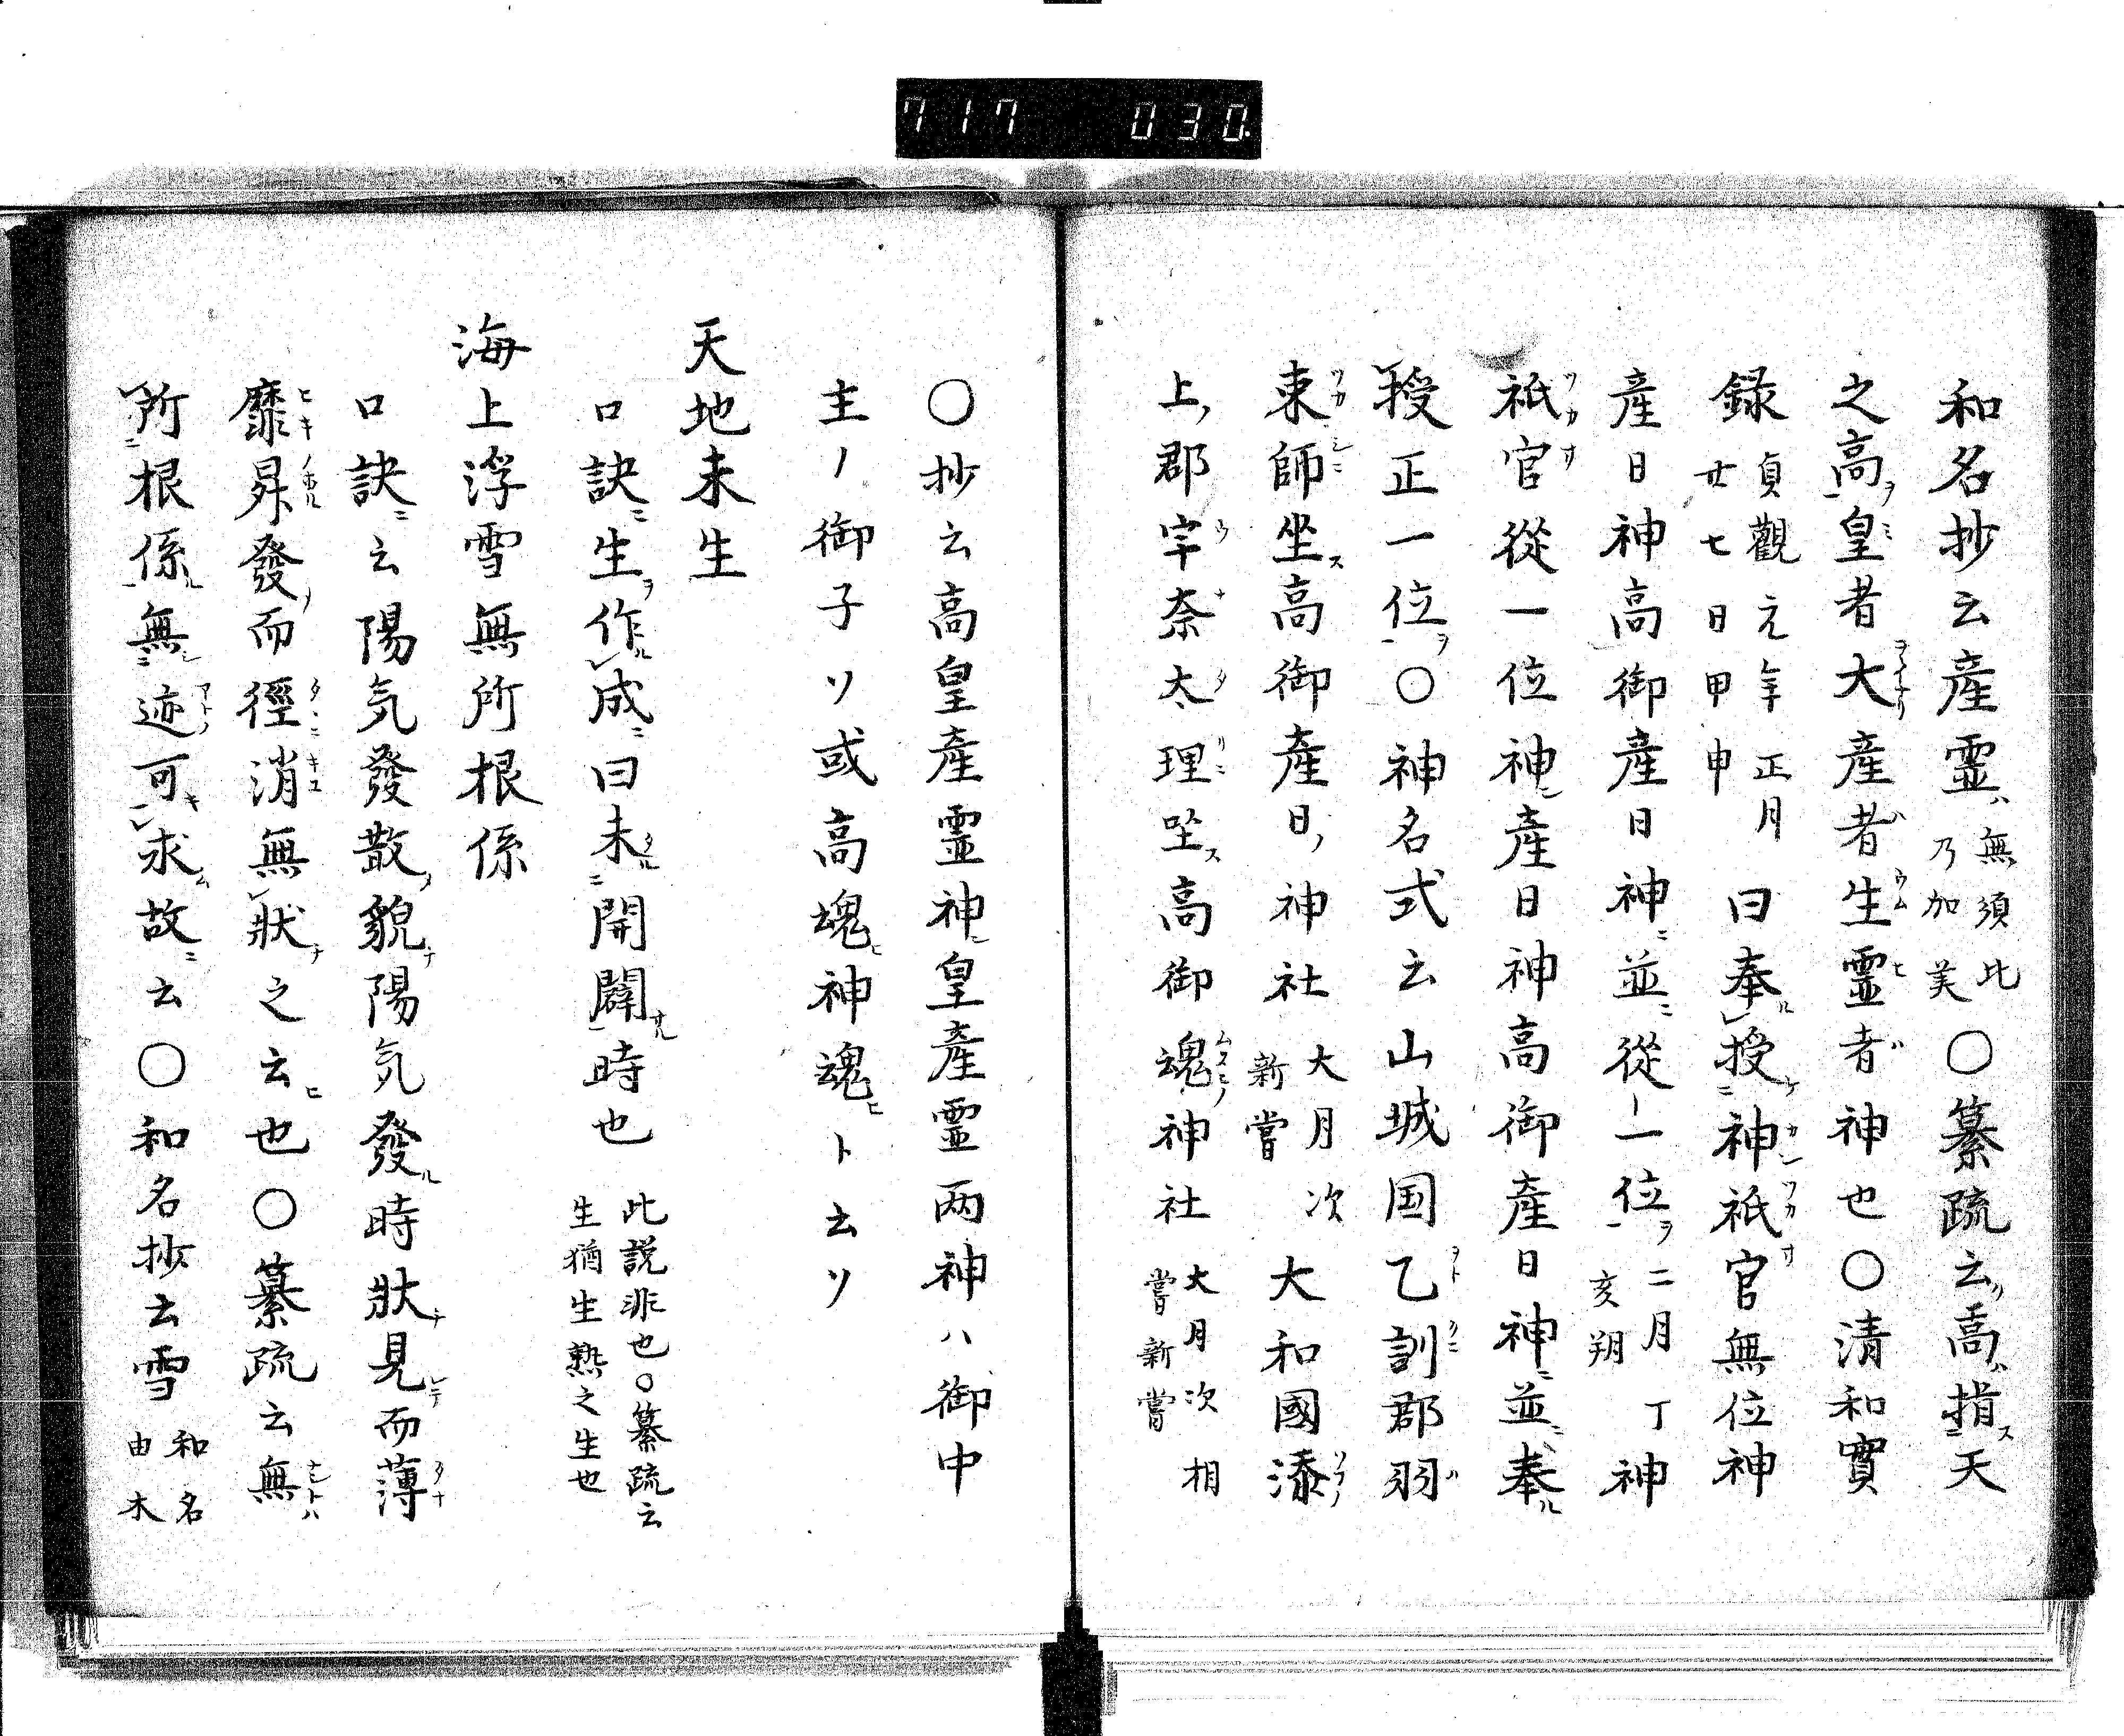 717 030.
和名抄云産霊無須比乃加美〇纂疏云高指天
之高皇者大産者生霊者神也〇清和實
録貞觀元年正月廿七日甲申曰奉授神祇官無位神
産日神高御産日神並從一位二月丁亥朔神
祇官從一位神産日神高御産日神並奉
授正一位〇神名式云山城国乙訓郡羽
束師坐高御産日神社大月次新嘗大和國添
上郡宇奈太理坐高御魂神社大月次相嘗新嘗
〇抄云高皇産霊神皇産霊两神ハ御中
主ノ御子ソ或高魂神魂ト云ソ
天地未生
口訣生作成曰未開闢時也此説非也〇纂疏云生猶生熟之生也
海上浮雪無所根係
口訣云陽気發散貌陽気發時狀見而薄
靡昇發而徑消無狀之云也〇纂疏云無
所根係無迹可求故云〇和名抄云雪和名由木